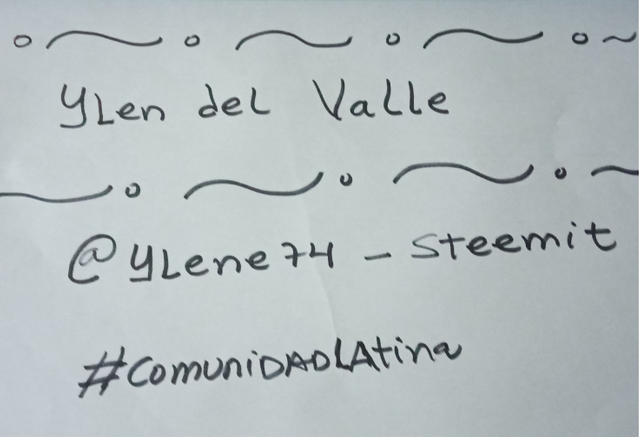 YLen del Valle
@YLene74 - Steemit
#ComuniDADLAtina